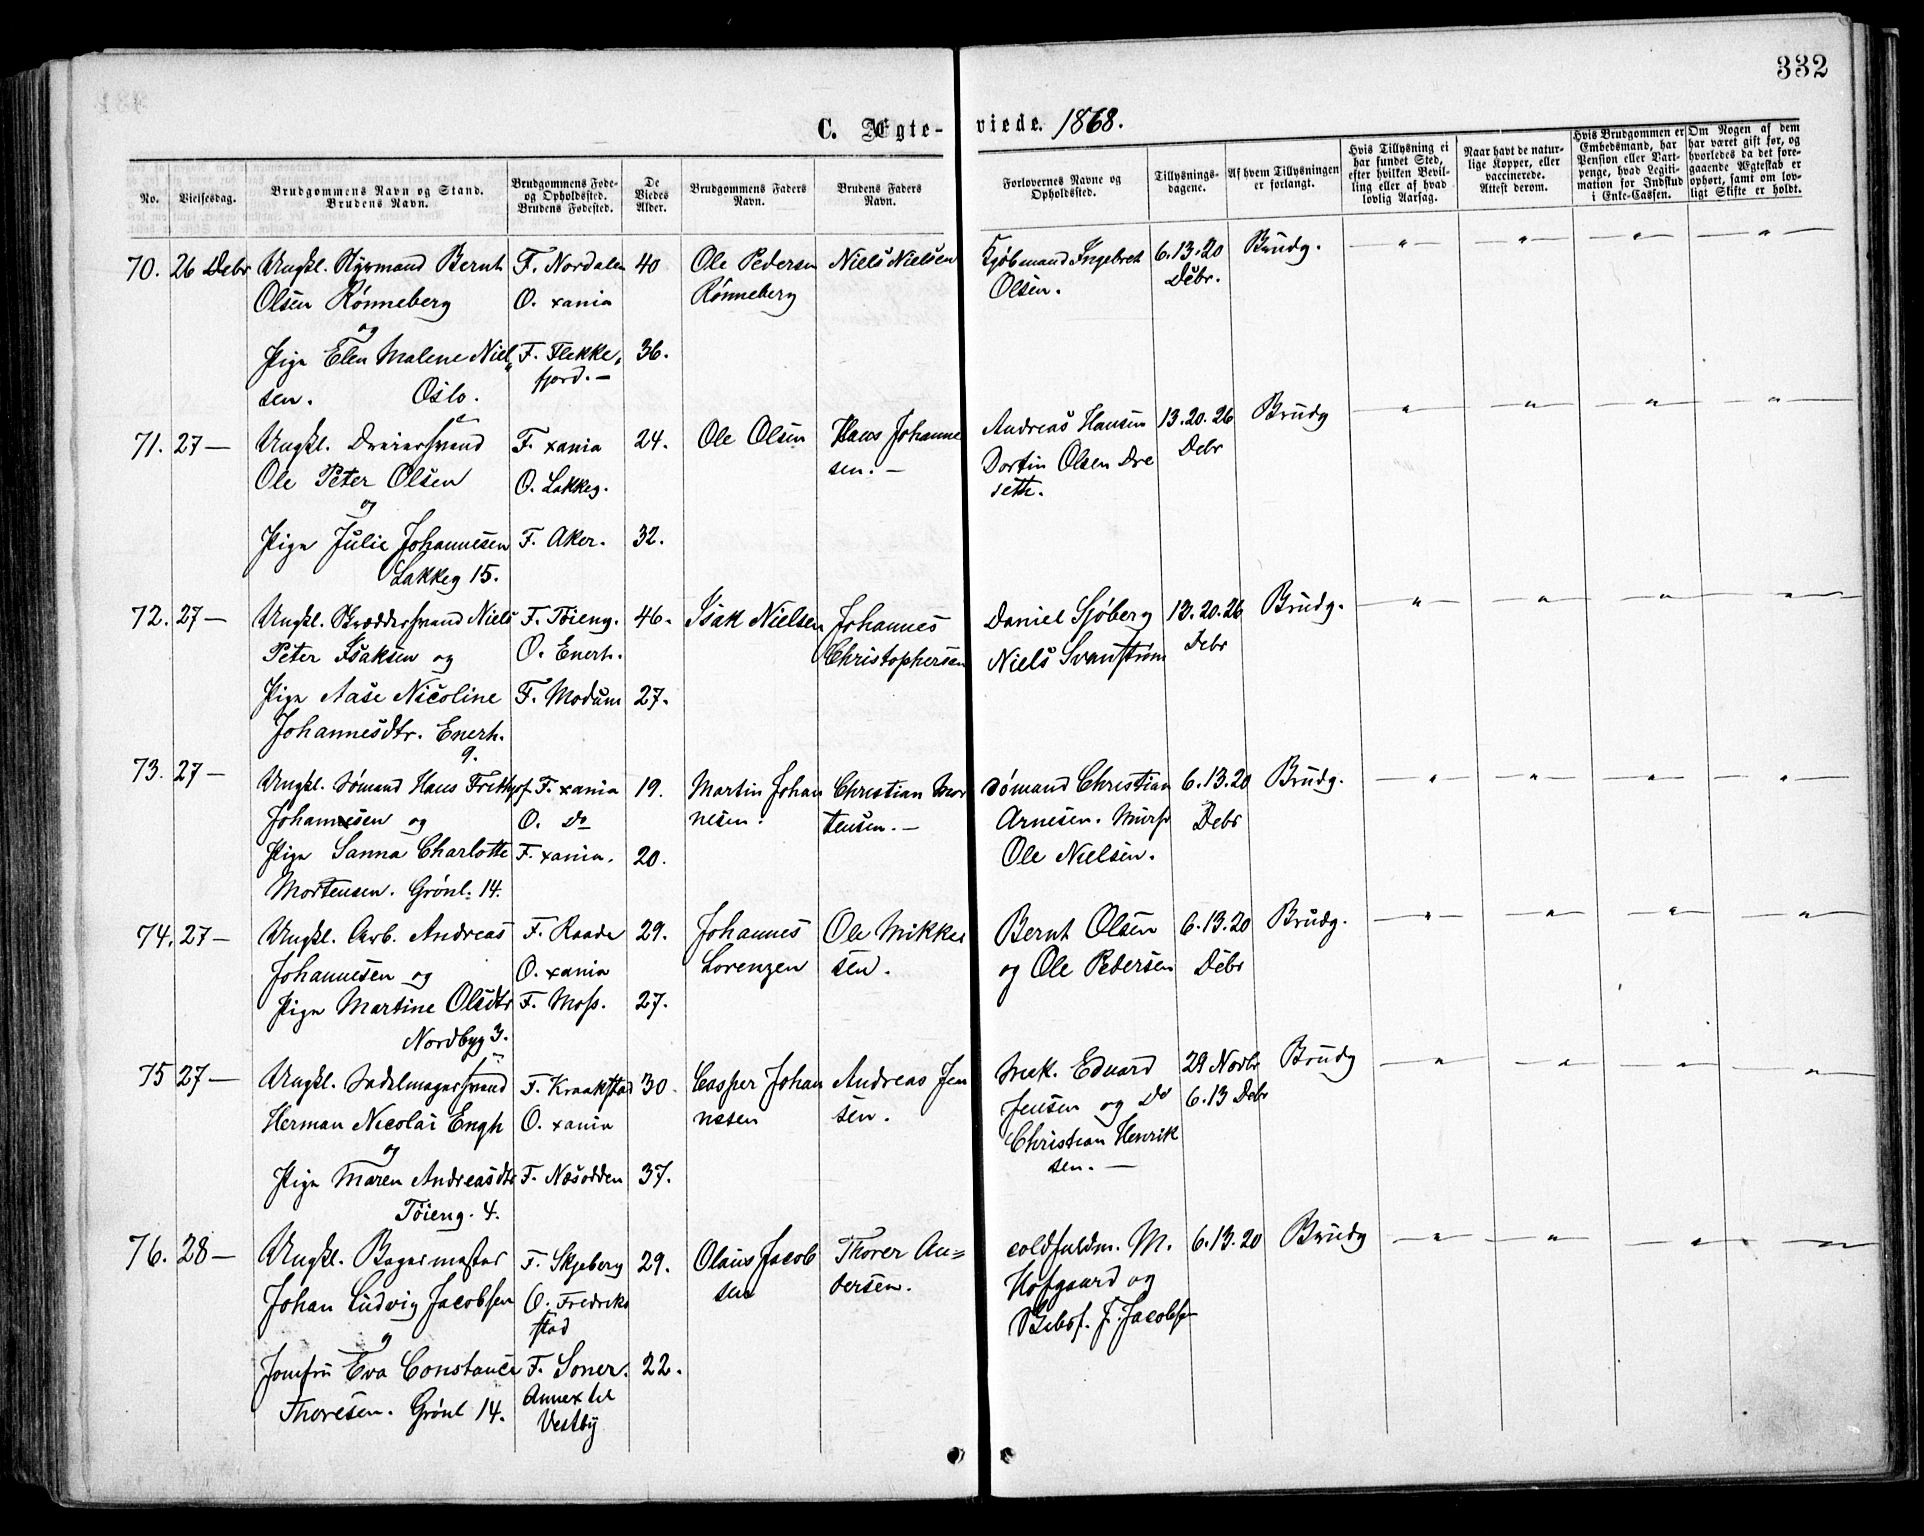 332
C. Ægte-viede. 1868.
No.
Vielsesdag.
Brudgommens Navn og Stand.
Brudens Navn.
Brudgommens Føde-
og Opholdssted.
Brudens Fødested.
De
Viedes
Alder.
Brudgommens Faders
Navn.
Brudens Faders
Navn.
Forlovernes Navne og
Opholdssted.
Tillysnings-
dagene.
Af hvem Tillysningen
er forlangt.
Hvis Tillysning ei
har fundet Sted,
efter hvilken Bevil-
ling eller af hvad
lovlig Aarsag.
Naar havt de natur-
lige Kopper, eller
vaccinerede.
Attest derom.
Hvis Brudgommen er
Embedsmand, har
Pension eller Vart-
penge, hvad Legiti-
mation for Indskud
i Enke-Cassen.
Om Nogen af dem
har været gift før, og
hvorledes da det fore-
gaaende Ægteskab er
ophørt, samt om lov-
ligt Skifte er holdt.
70. 26 Debr Ungkl. Styrmand Bernt F. Nordalen 40 Ole Pedersen Niels Nielsen Kjøbmand Ingebret 6.13.20 Brudg. " " " "
Olsen Rønneberg O. xania Rønneberg Olsen. Debr.
og
Pige Elen Malene Niel„ F. Flekke„ 36.
sen. Oslo. fjord. —
71. 27 — Ungkl. Dreiersvend F. xania 24. Ole Olsen Hans Johanne Andreas Hansen 13.20.26 Brudg " " " "
Ole Peter Olsen O. Lakkeg. sen. — Dortin Olsen Dre Debr
og sette.
Pige Julie Johannesen F. Aker. 32.
Lakkeg 15.
72. 27 — Ungkl. Skræddersvend Niels F. Töieng. 46. Isak Nielsen Johannes Daniel Sjöberg 13.20.26 Brudg. " " " "
Peter Isaksen og O. Enerh. Christophersen Niels Svanstrøm Debr
Pige Aase Nicoline F. Modum 27.
Johannesdtr. Enerh.
9.
73. 27 — Ungkl. Sømand Hans Frithjof F. xania 19. Martin Johan Christian Mor Sømand Christian 6.13.20 Brudg. " " " "
Johannesen og O. Do nesen. tensen. — Arnesen. Murs Debr
Pige Sanna Charlotte F. xania. 20. Ole Nielsen.
Mortensen. Grönl. 14.
74. 27 — Ungkl. Arb. Andreas F. Raade 29. Johannes Ole Mikkel Bernt Olsen 6.13.20 Brudg. " " " "
Johannesen og O. xania Lorenzen sen. og Ole Pedersen Debr
Pige Martine Olsdtr F. Moss. 27.
Nordbyg 3.
75 27 — Ungkl. Sadelmagersvend F. Kraakstad 30. Casper Johan Andreas Jen Snek. Eduard 29 Novbr Brudg " " " "
Herman Nicolai Engh O. xania nesen sen. Jensen og Do 6.13 Debr
og Christian Henrik
sen. —
Pige Maren Andreasdtr F. Næsodden 37.
Töieng. 4.
76. 28 — Ungkl. Bagermester F. Skjeberg 29. Olaus Jacob Thorer An= Toldfuldm. M. 6.13.20 Brudg " " " "
Johan Ludvig Jacobsen O. Fredrik sen dersen. Hofgaard og
og stad F. Jacobsen
Jomfru Eva Constance F. Soner. 22.
Thoresen. Grönl 14. Annex til
Vestby